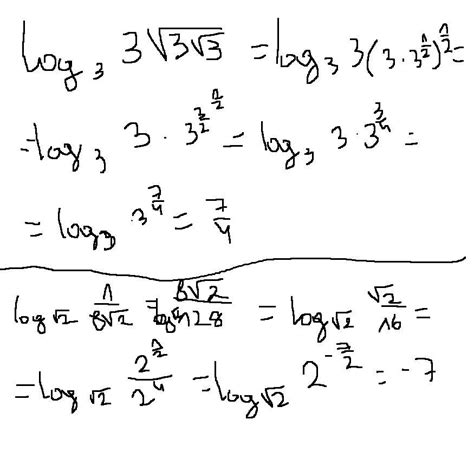 log₃ 3√(3√3) = log₃ 3(3·3^(1/2))^(1/2) =
= log₃ 3 · 3^((3/2)^(1/2)) = log₃ 3·3^(3/4) =
= log₃ 3^(7/4) = 7/4
log_√2 1/(8√2) = log_√2 (8√2)/128 = log_√2 √2/16 =
= log_√2 2^(1/2)/2^4 = log_√2 2^(-7/2) = -7